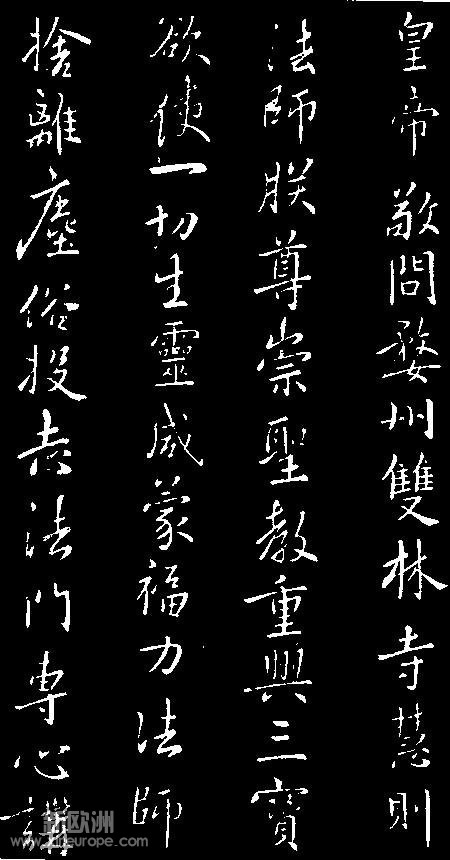 皇帝敬問婺州雙林寺慧則
法師朕尊崇聖教重興三寶
欲使一切生靈咸蒙福力法師
捨離塵俗投志法門專心講
新欧洲
www.xineurope.com